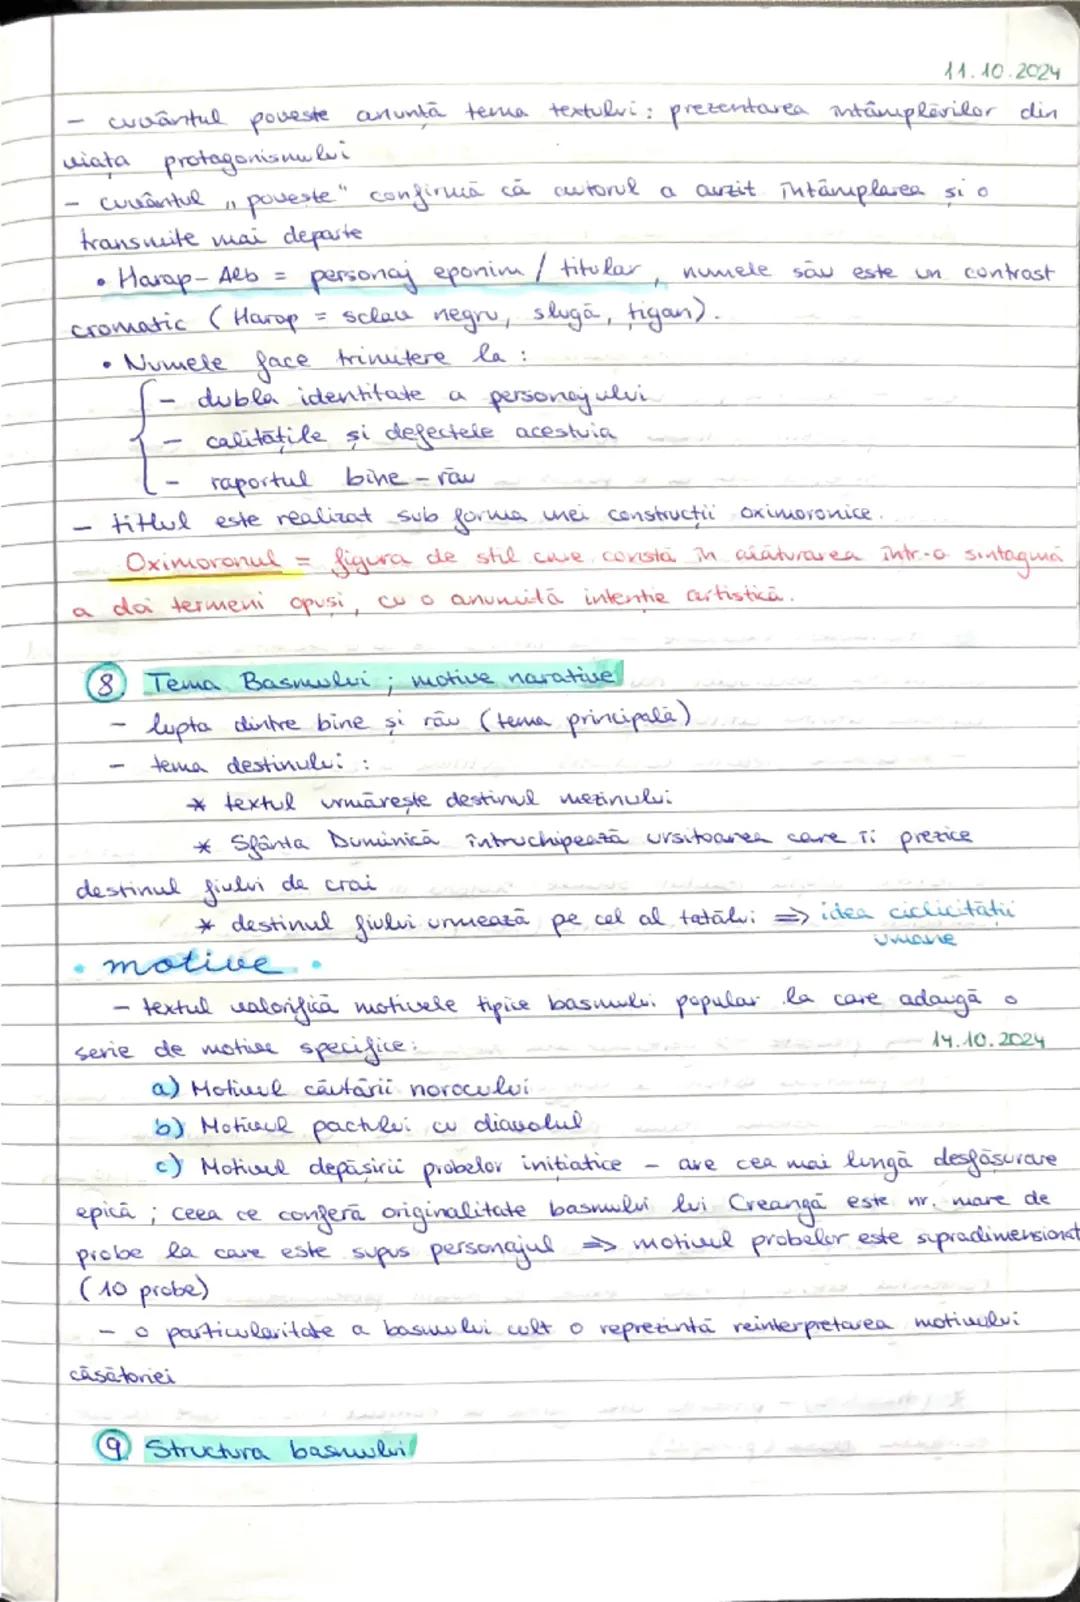 11.10.2024
- cuvântul poveste anunță tema textului: prezentarea întâmplărilor din
viața protagonismului
- cuvântul „poveste" confirmă că autorul a auzit întâmplarea și o
transmite mai departe
• Harap-Alb = personaj eponim / titular, numele său este un contrast
cromatic (Harap = sclav negru, slugă, țigan).
• Numele face trimitere la:
- dubla identitate a personajului
- calitățile și defectele acestuia
- raportul bine - rău
- titlul este realizat sub forma unei construcții oximoronice.
Oximoronul = figura de stil care constă în alăturarea într-o sintagmă
a doi termeni opuși, cu o anumită intenție artistică.
8 Tema Basmului; motive narative
- lupta dintre bine și rău (tema principală)
- tema destinului:
* textul urmărește destinul mezinului
* Sfânta Duminică întruchipează ursitoarea care îi prezice
destinul fiului de crai
* destinul fiului urmează pe cel al tatălui => idea ciclicității
umane
• motive •
- textul valorifică motivele tipice basmului popular la care adaugă o
serie de motive specifice:
14.10.2024
a) Motivul căutării norocului
b) Motivul pactului cu diavolul
c) Motivul depășirii probelor inițiatice - are cea mai lungă desfășurare
epică; ceea ce conferă originalitate basmului lui Creangă este nr. mare de
probe la care este supus personajul => motivul probelor este supradimensionat
(10 probe)
- o particularitate a basmului cult o reprezintă reinterpretarea motivului
căsătoriei
9 Structura basmului